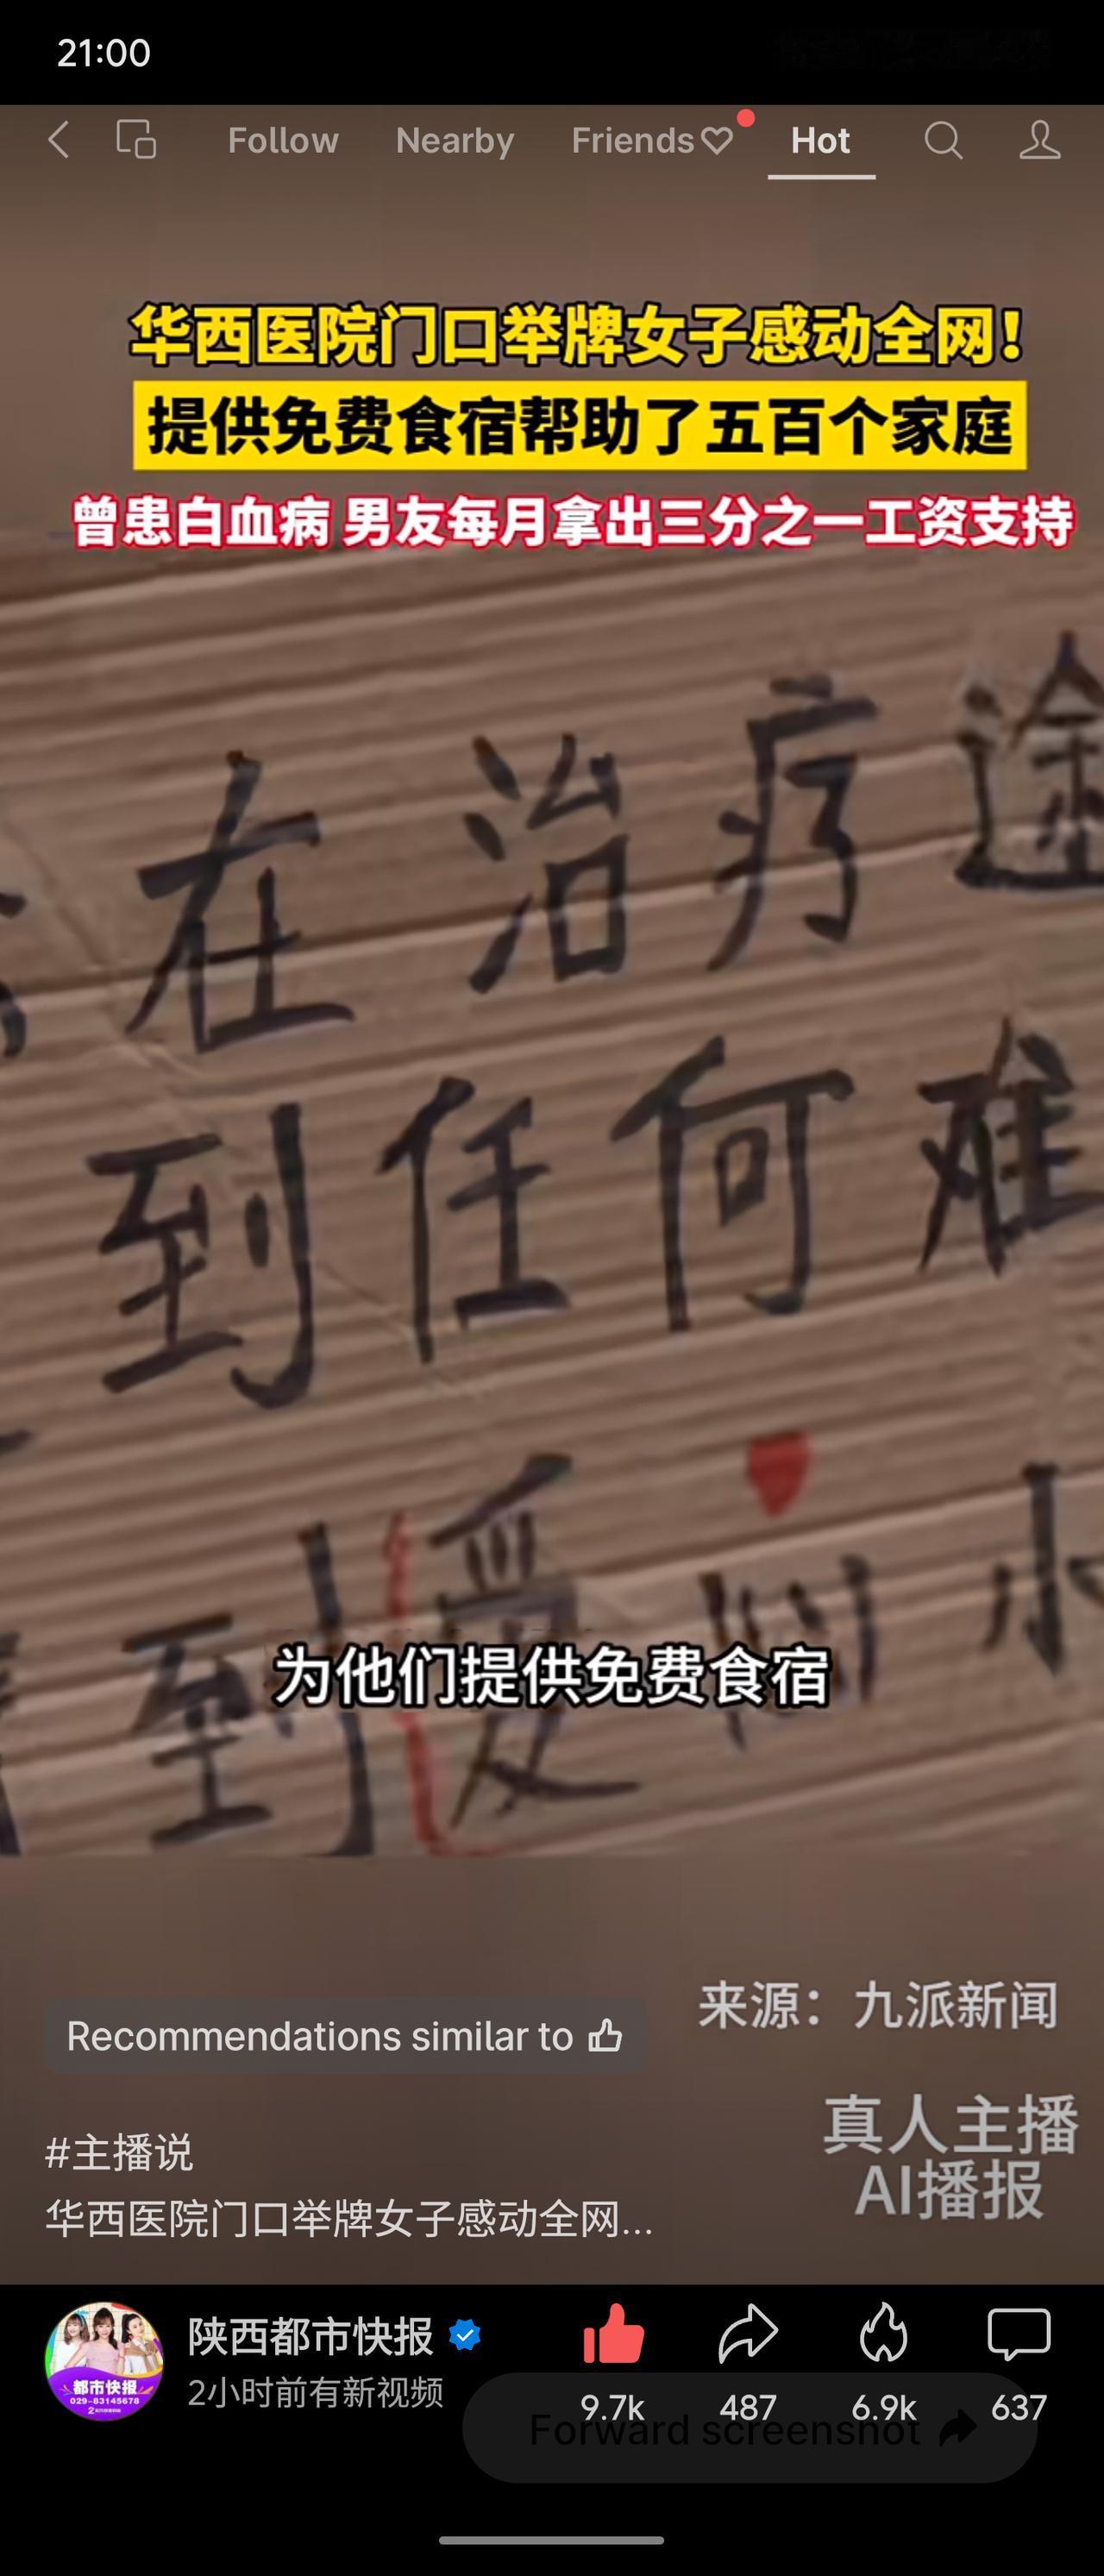 21:00
Follow Nearby Friends Hot
华西医院门口举牌女子感动全网！
提供免费食宿帮助了五百个家庭
曾患白血病 男友每月拿出三分之一工资支持
在治疗途
到任何难
到爱 小
为他们提供免费食宿
来源：九派新闻
Recommendations similar to
真人主播
AI播报
#主播说
华西医院门口举牌女子感动全网...
陕西都市快报
2小时前有新视频
都市快报
029-83145678
9.7k 487 6.9k 637
Forward screenshot